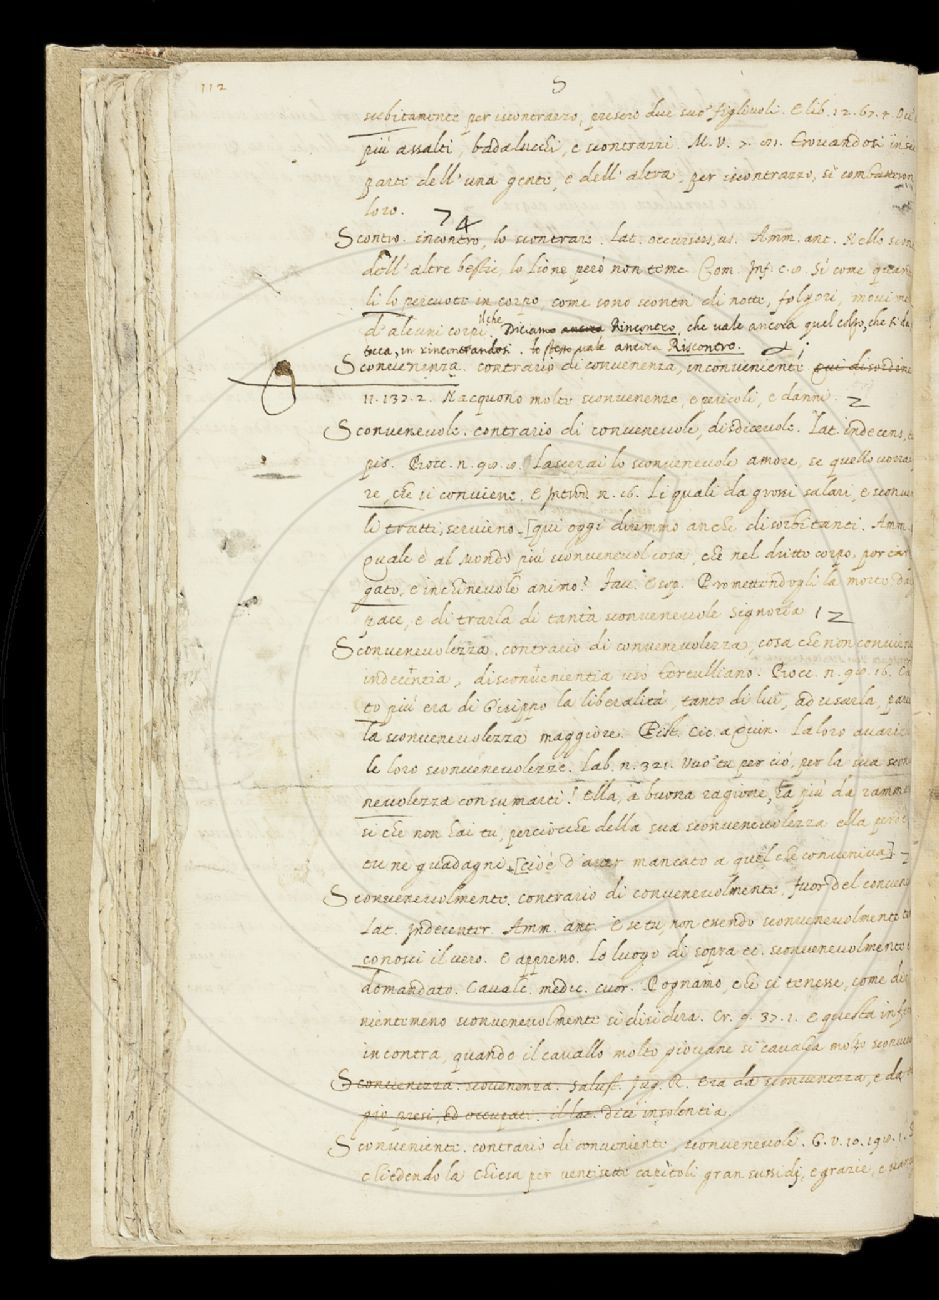 112
S
subitamente per iscontrazzo, presero due suoi figliuoli. E lib. 12. 67. 4.
più assalti, badalucchi, e scontrazzi. M. V. 7. Trovandosi in
parte dell'una gente, e dell'altra, per iscontrazzo, si combatteron
loro.
Scontro. incontro, lo scontrare. Lat. occursus, us. Amm. ant. Nello
dell'altre bestie, lo Lione però non teme. Com. Inf. c. Sì come
li lo percuote in corpo come sono scontri di notte, folgori,
d'alcuni corpi. il che Diciamo ancora Rincontro, che vale ancora quel colpo, che si
tocca, in rincontrandosi. lo stesso vale ancora Riscontro.
Sconvenenza. contrario di convenenza, inconveniente
11. 132. 2. Nacquono molte sconvenenze, e pericoli, e danni. Z
Sconvenevole. contrario di convenevole, disdicevole. Lat. indecens,
pis. Bocc. n. 98. Lascerai lo sconvenevole amore, se quello
re, che si conviene. E introd. n. 16. Li quali da grossi salari, e
li tratti, servieno. [qui oggi diremmo anche disorbitanti. Amm.
quale è al mondo più sconvenevol cosa, che nel dritto corpo, portar
gato, e inchinevole animo? Fav. Esop. Promettendogli la morte
pace, e di trarla di tanta sconvenevole Signoria 1 Z
Sconvenevolezza. contrario di convenevolezza, cosa che non
indecentia, disconvenientia usò Tertulliano. Bocc. n. 98. 16.
to più era di Gisippo la liberalità tanto di lui, ad usarla,
la sconvenevolezza maggiore. Pist. Cic. a Quin. La loro
le loro sconvenevolezze. Lab. n. 321. Vuo' tu per ciò, per la sua
nevolezza consumarti? Ella, a buona ragione, ha più da
si che non hai tu, perciocchè della sua sconvenevolezza ella
tu ne guadagni. [cioè d'aver mancato a quel che conveniva]
Sconvenevolmente. contrario di convenevolmente, fuor del
Lat. Indecenter. Amm. ant. E se tu, non exendo sconvenevolmente
conosci il vero. E appreso. Lo luogo di sopra ec. sconvenevolmente
domandato. Cavalc. medic. cuor. Pognamo, che si tenesse, come
nientemeno sconvenevolmente si disidera. Cr. 9. 37. 1. E questa
incontra, quando il cavallo molto giovane si cavalca molto
Sconvenezza. sconvenenza. Salust. Jug. R. Era da sconvenezza, e da
gio presi, ed occupati. il lat. dice insolentia.
Sconveniente. contrario di conveniente, sconvenevole. G. V. 10. 198. 1.
chiedendo la Chiesa per ventisette capitoli gran sussidj, e grazie, e